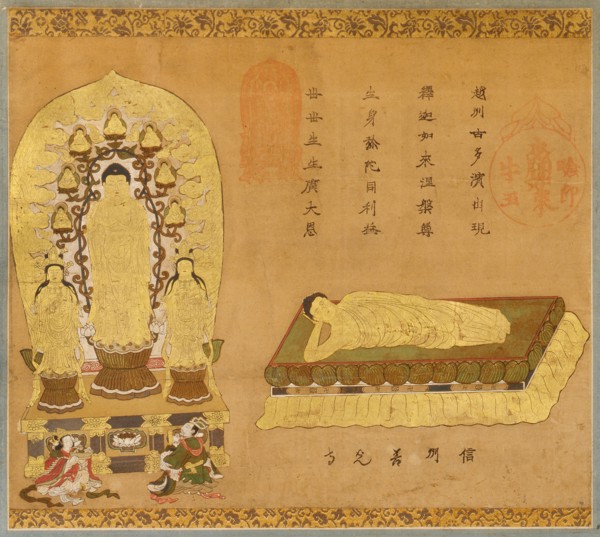 越州古多濱出現
釋迦如來涅槃尊
生身弥陀同利益
世世生生廣大恩
信州善光寺